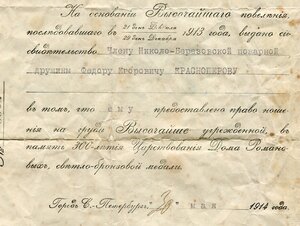 На основаніи Высочайшаго повелѣнія,
послѣдовавшаго въ 21 день Февраля 29 дня Декабря 1913 года, выдано сви-
дѣтельство Члену Николо-Березовской пожарной
дружины Федору Егоровичу КРАСНОПЕРОВУ
въ томъ, что ему предоставлено право ноше-
нія на груди Высочайше учрежденной, въ
память 300-лѣтія Царствованія Дома Романо-
выхъ, свѣтло-бронзовой медали.
Городъ С.-Петербургъ. мая 1914 года.